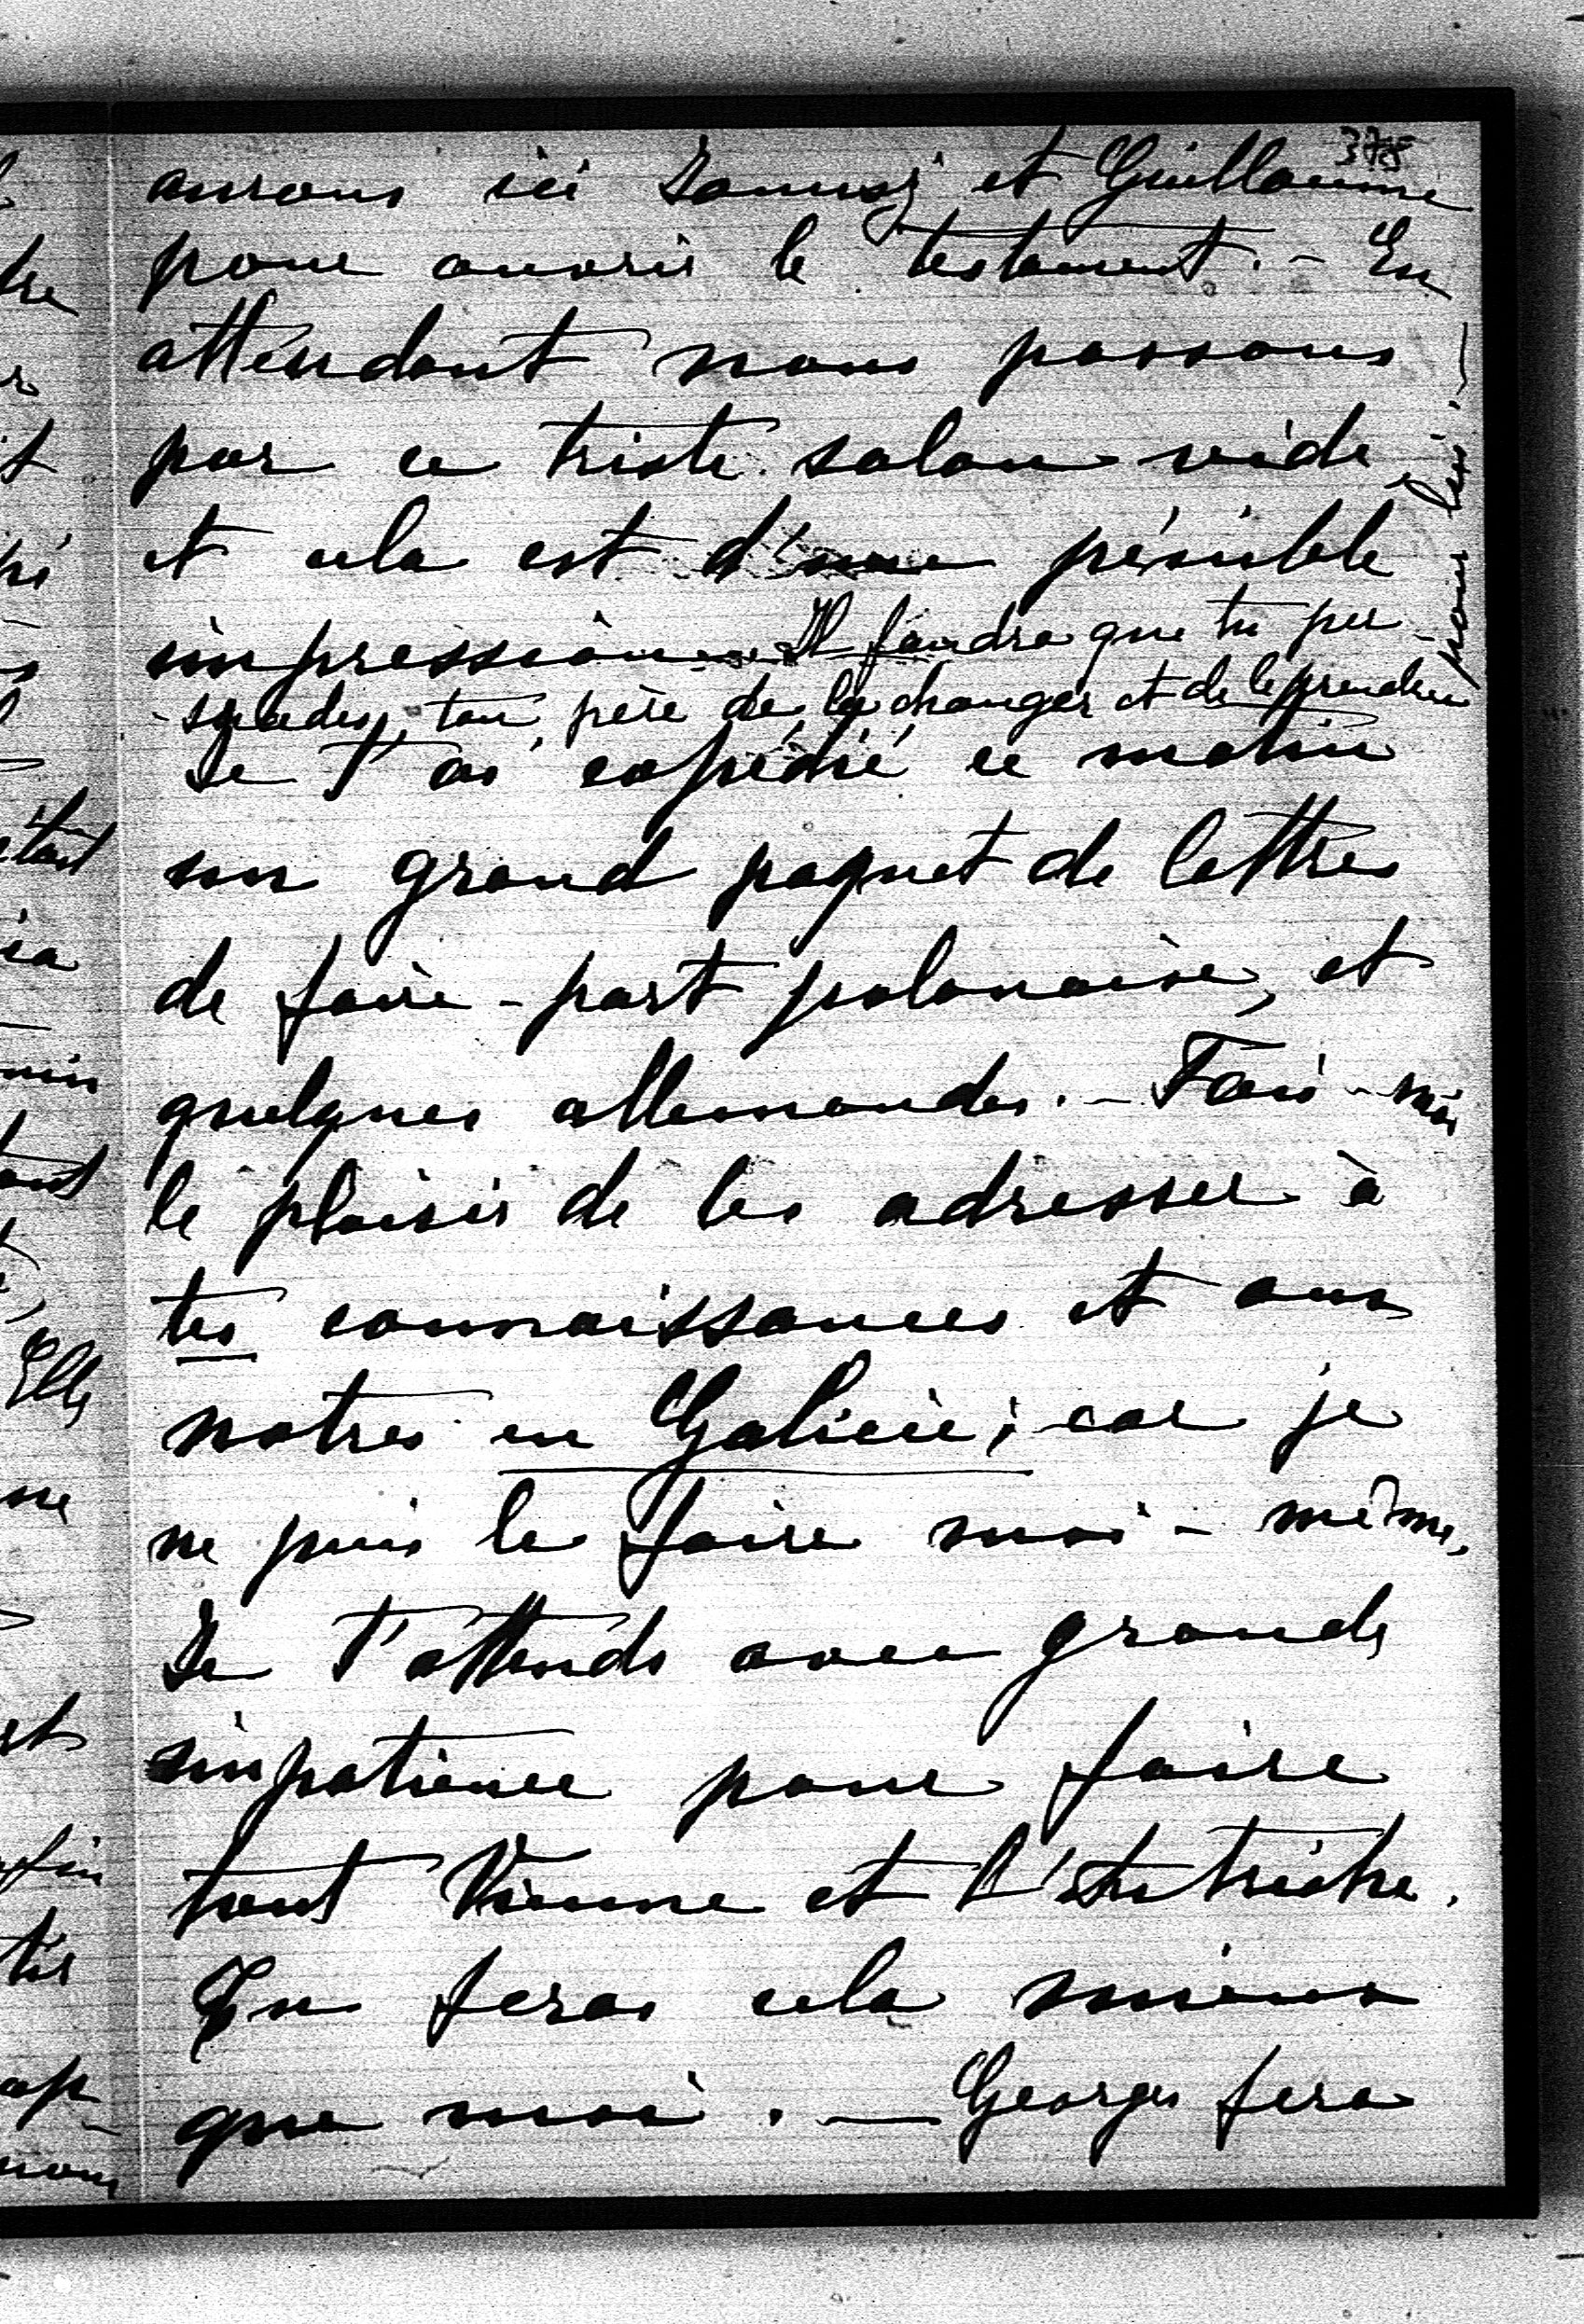 378
aurons ici Janusz et Guillaume
pour ouvrir le testament. - En
attendant nous passons
par ce triste salon vide
et cela est d'une pénible
impression. - Il faudra que tu per-
suades, ton père de le changer et de le prendre
pour lui. -
Je t'ai expédié ce matin
un grand paquet de lettres
de faire-part polonaise, et
quelques allemandes. - Fais-moi
le plaisir de les adresser à
tes connaissances et aux
notres en Galicie; car je
ne puis le faire moi-même,
Je t'attends avec grande
impatience pour faire
tout Vienne et l'Autriche.
Tu feras cela mieux
que moi. — Georges fera